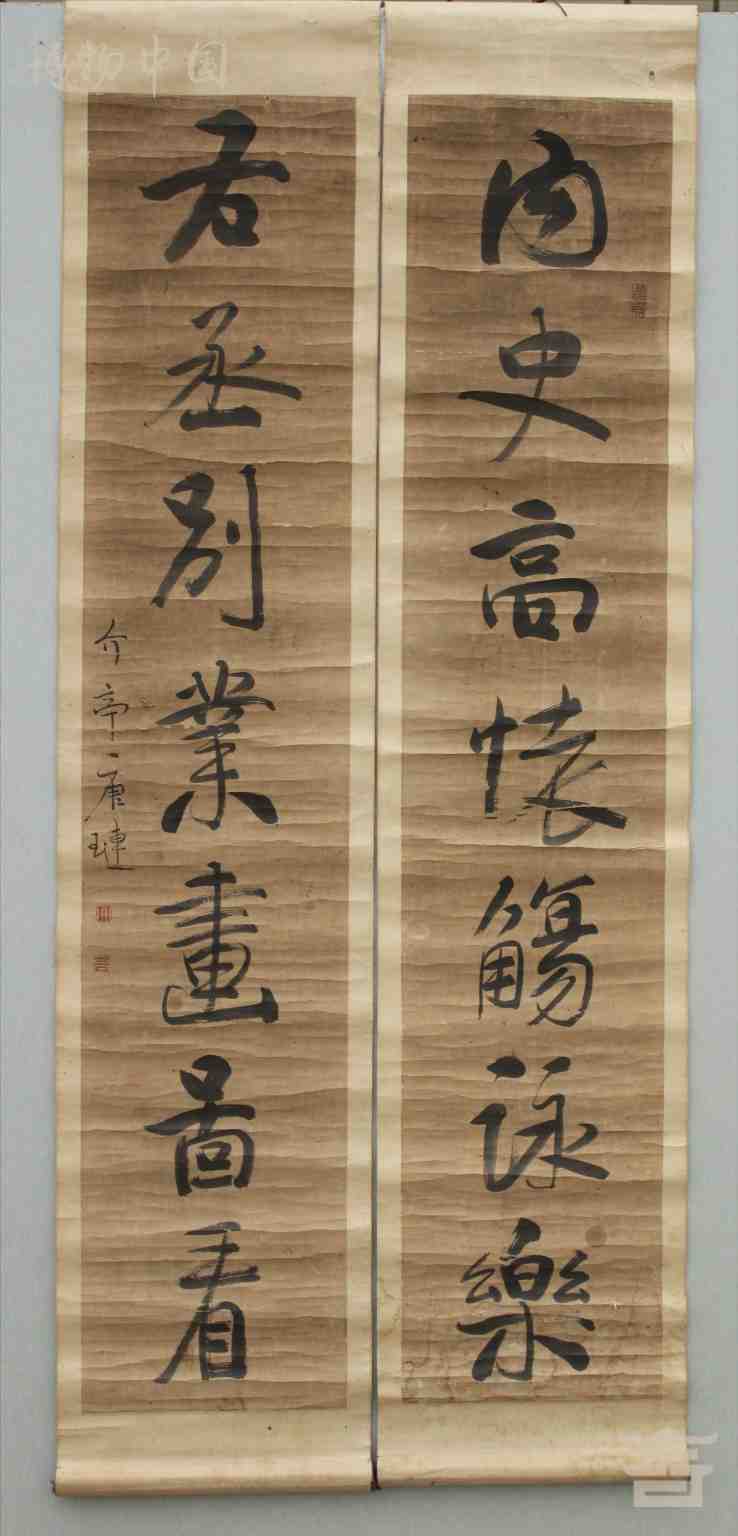 内史高懷觴詠樂
右丞別業畫啚看
介亭唐璉
博物中国